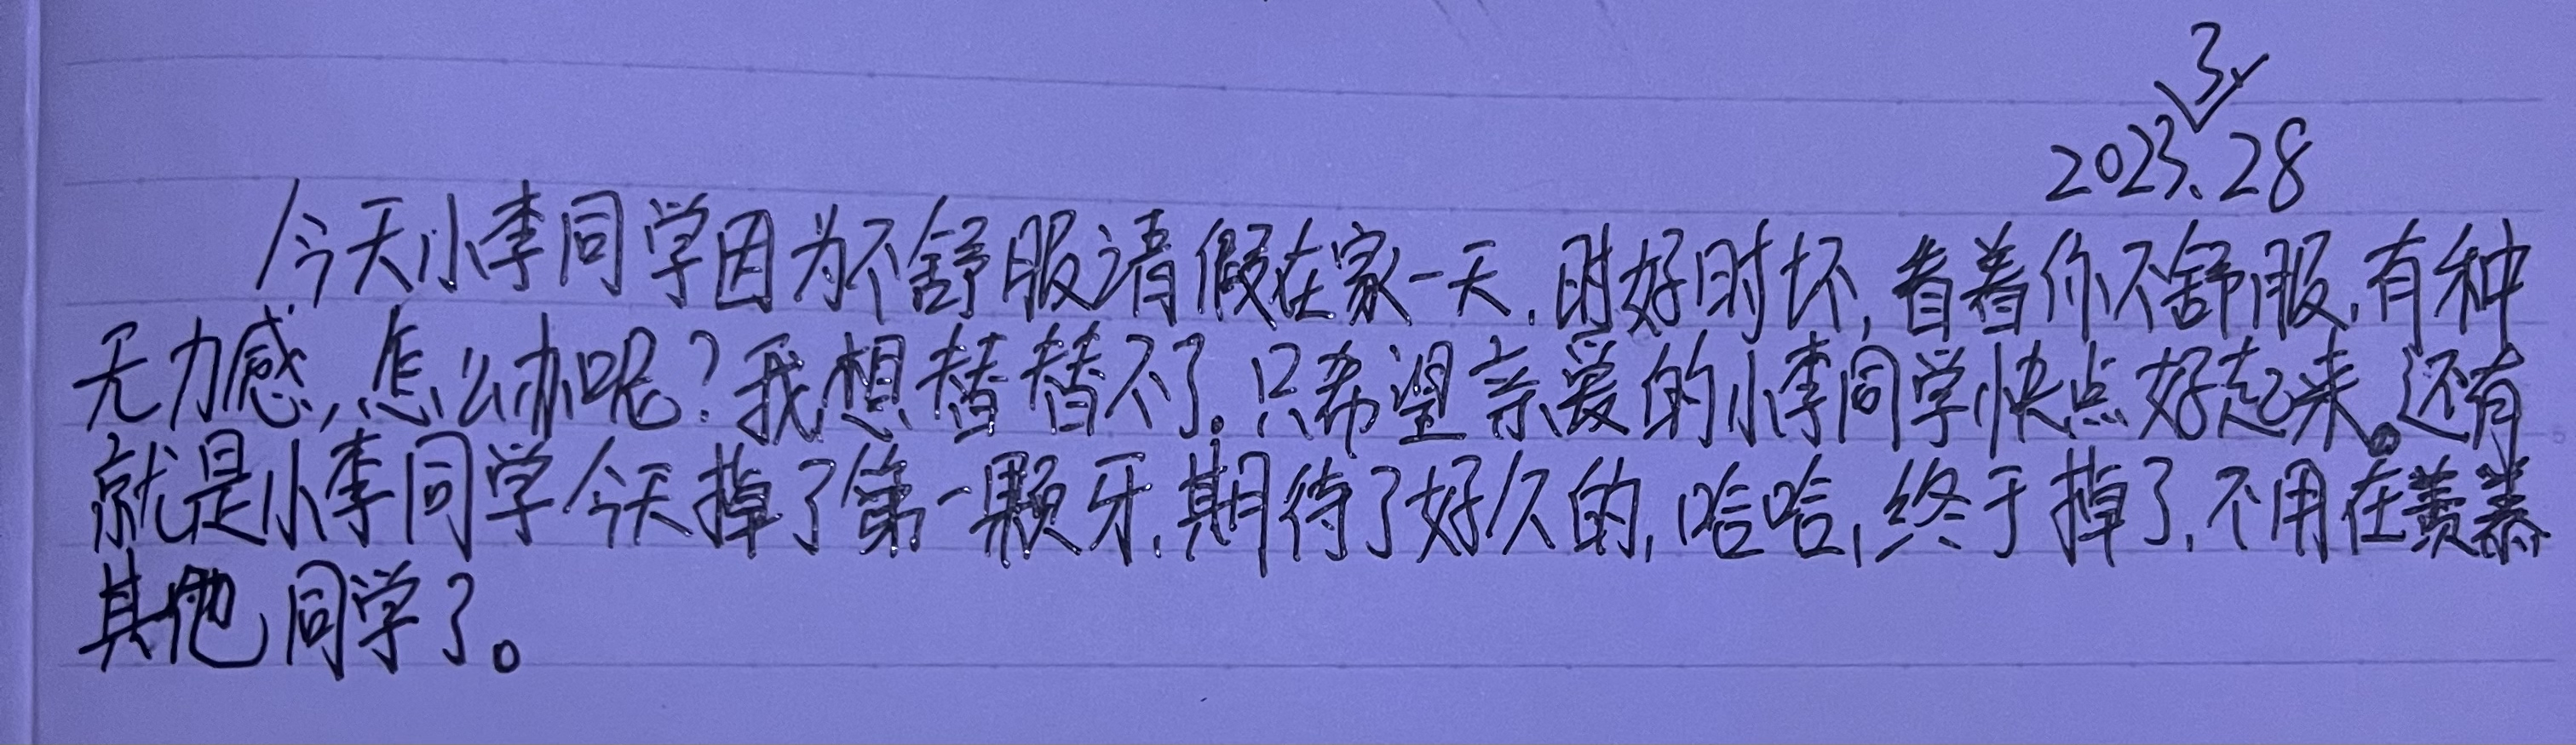 3
2023.28
今天小李同学因为不舒服请假在家一天,时好时坏,看着你不舒服,有种
无力感,怎么办呢?我想替替不了。只希望亲爱的小李同学快点好起来。还有
就是小李同学今天掉了第一颗牙,期待了好久的,哈哈,终于掉了,不用在羡慕
其他同学了。